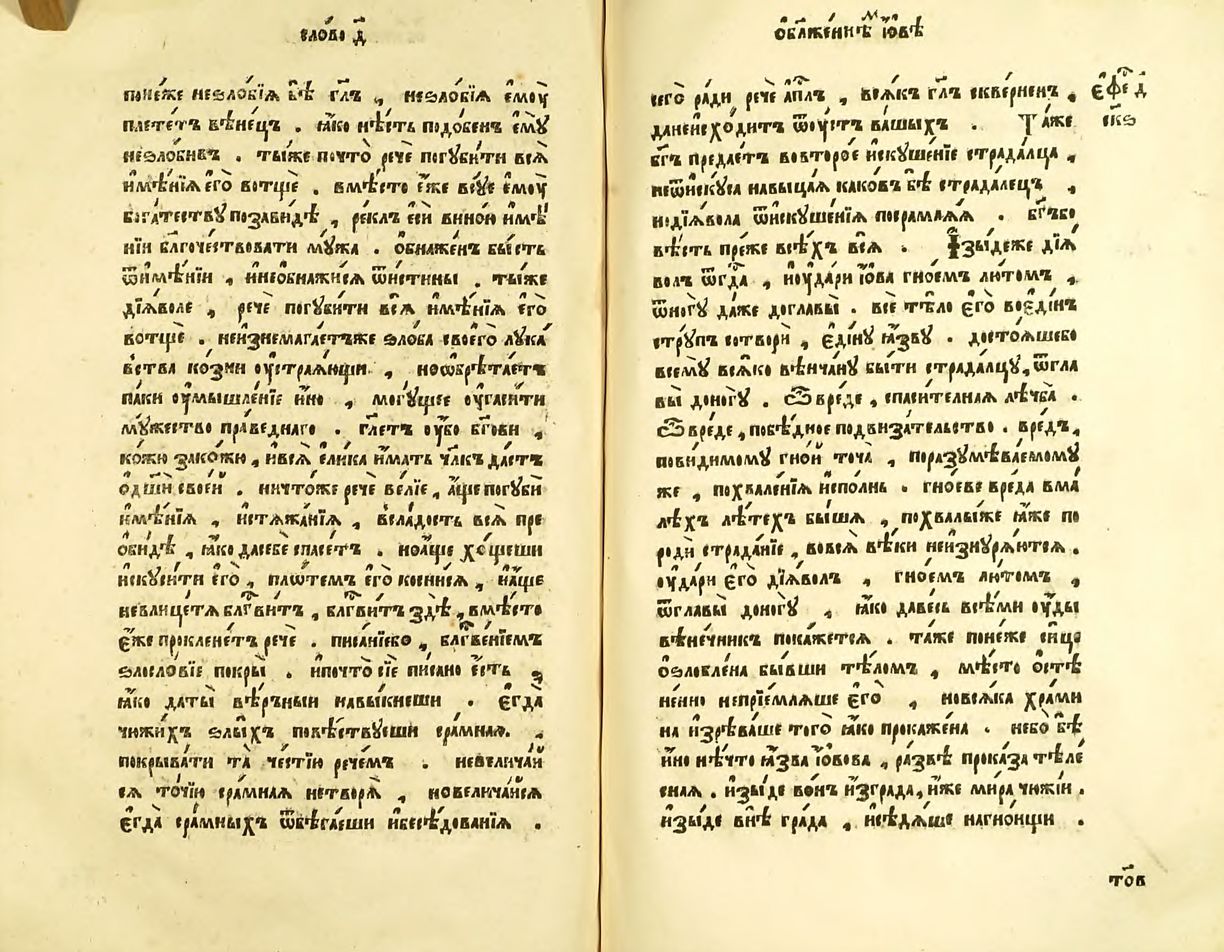 сло́во д҃
поне́же неѕло́бїѧ бѣ̀ гл҃ъ , неѕло́бїѧ є҆моу̀
плете́тъ вѣне́цъ . ꙗ҆́ко нѣ́сть подо́бенъ є҆мꙋ̀
неѕло́бивъ . ты́же почто̀ речѐ погꙋби́ти всѧ̀
и҆мѣ́нїѧ є҆го̀ вотщѐ . вмѣ́сто є҆́же всꙋ́е є҆моу̀
бога́тествꙋ позави́дѣ , ре́клъ є҆сѝ вино́ю и҆мѣ́
нїи бл҃гоче́ствовати мꙋ́жа . ѡ҆бнаже́нъ бы́сть
ѿи҆мѣ́нїи , и҆неѡ҆бнажи́сѧ ѿи́стины . ты́же
дїѧ́воле , речѐ погꙋби́ти всѧ̀ и҆мѣ́нїѧ є҆го̀
вотщѐ . неи҆знемага́етъже ѕло́ба своего̀ лꙋка́
вства ко́зни оу҆страѧ́ющи , но̀ѡ҆брѣта́етъ
па́ки оу҆мышле́нїе и҆́но , могꙋ́щее оу҆гаси́ти
мꙋ́жество пра́веднаго . гл҃етъ оу҆́бо бг҃ови ,
ко́жю зако́жю , и҆всѧ̀ є҆ли́ка и҆́мать чл҃къ да́стъ
ѡ҆дш҃и свое́й . ничто́же речѐ ве́лїе , а҆́ще погꙋбѝ
и҆мѣ́нїѧ , и҆стѧжа́нїѧ , всла́дость всѧ̀ пре
ѡ҆би́дѣ , ꙗ҆́ко дасебѐ спасе́тъ . но̀а҆́ще хо́щеши
и҆скꙋси́ти є҆го̀ , пло́темъ є҆го̀ косни́сѧ , и҆а҆́ще
невлицетѧ̀ блг҃ви́тъ , блг҃ви́тъ здѣ̀ , вмѣ́сто
є҆́же проклене́тъ речѐ . писа́нїебо , блг҃ве́нїемъ
ѕлосло́вїе покры̀ . и҆почто̀ сїѐ пи́сано є҆́сть ,
ꙗ҆́ко даты̀ вѣ́рныи навы́кнеши . є҆гда̀
чюжи́хъ ѕлы́хъ повѣ́ствꙋеши сра́мнаѧ ,
покрыва́ти та̀ че́стїю ре́чемъ . невелича́й
сѧ то́чїю сра́мнаѧ нетворѧ̀ , новелича́йсѧ
є҆гда̀ сра́мныхъ ѿбѣга́еши и҆бесѣ́дованїѧ .
ѡ҆блаже́ннѣм і҆́овѣ
сего̀ ра́ди речѐ а҆пл҃ъ , всѧ́къ гл҃ъ скве́рненъ ,
данеи҆схо́дитъ ѿоу҆́стъ ва́шыхъ . Та́же
бг҃ъ предае́тъ вовторо́е и҆скꙋше́нїе страда́лца ,
неѿи́скꙋса навыца́ѧ како́въ бѣ̀ страда́лецъ ,
но̀дїѧ́вола ѿи҆скꙋше́нїѧ посрамлѧ́ѧ . бг҃ъбо
вѣ́сть пре́же всѣ́хъ всѧ̀ . И҆зы́деже дїѧ́
волъ ѿгда̀ , и҆оу҆да́ри і҆́ова гно́емъ лю́томъ ,
ѿногꙋ̀ да́же доглавы̀ . всѐ тѣ́ло є҆го̀ воеди́нъ
стрꙋ́пъ сотворѝ , є҆ди́нꙋ ꙗ҆́звꙋ . досто́ѧшебо
всемꙋ̀ всѧ́ко вѣнча́нꙋ бы́ти страда́лцꙋ , ѿгла
вы̀ доногꙋ̀ . Ѽ вре́де , спаси́телнаѧ лѣ́чба .
Ѽ вре́де , побѣ́дное подвиза́тельство . вре́дъ ,
пови́димомꙋ гно́й точа̀ , поразꙋмѣва́емомꙋ
же , похвале́нїѧ и҆спо́лнь . гно́еве вре́да вма́
лѣхъ лѣ́техъ бы́шѧ , похвалы́же ꙗ҆́же по
родѝ страда́нїе , вовсѧ̀ вѣ́ки неи҆знꙋрѧ́ютсѧ .
оу҆да́ри є҆го̀ дїѧ́волъ , гно́емъ лю́томъ ,
ѿглавы̀ доногꙋ̀ , ꙗ҆́ко даве́сь всѣ́ми оу҆́ды
вѣне́чникъ пока́жетсѧ . та́же поне́же си́це
ѡ҆ѕло́блена бы́вши тѣ́ломъ , мѣ́сто ѻ҆стѣ
не́нно непрїе́млѧше є҆го̀ , новсѧ́ка хра́ми
на и҆зрѣва́ше того̀ ꙗ҆́ко прокаже́на . небо̀ бѣ̀
и҆́но нѣ́что ꙗ҆́зва і҆́овова , ра́звѣ прока́за тѣле́
снаѧ . и҆зы́де во́нъ и҆згра́да , и҆́же ми́ра чюжі́и .
и҆зы́де внѣ̀ гра́да , и҆сѣдѧ́ше нагно́ищи .
є҆фе д
ск҃ѕ
то́в